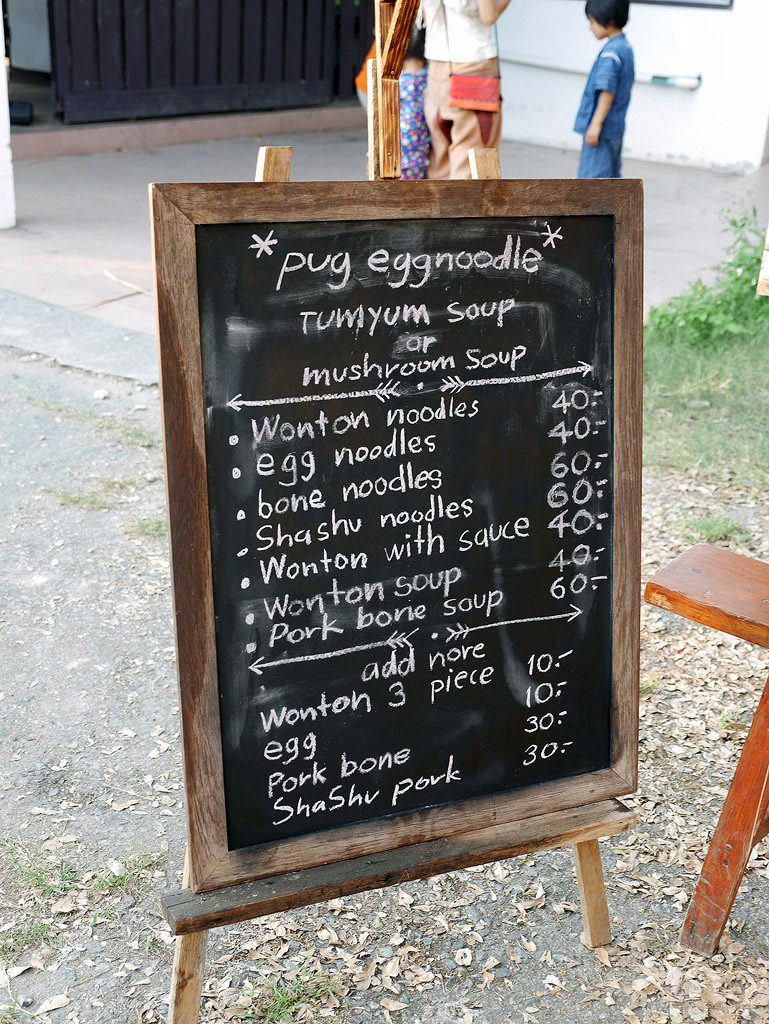 *pug eggnoodle*
TUMYUM Soup
or
mushroom Soup
Wonton noodles 40.-
egg noodles 40.-
bone noodles 60.-
Shashu noodles 60.-
Wonton with sauce 40.-
Wonton soup 40.-
Pork bone soup 60.-
add nore
Wonton 3 piece 10.-
egg 10.-
Pork bone 30.-
ShaShu pork 30.-